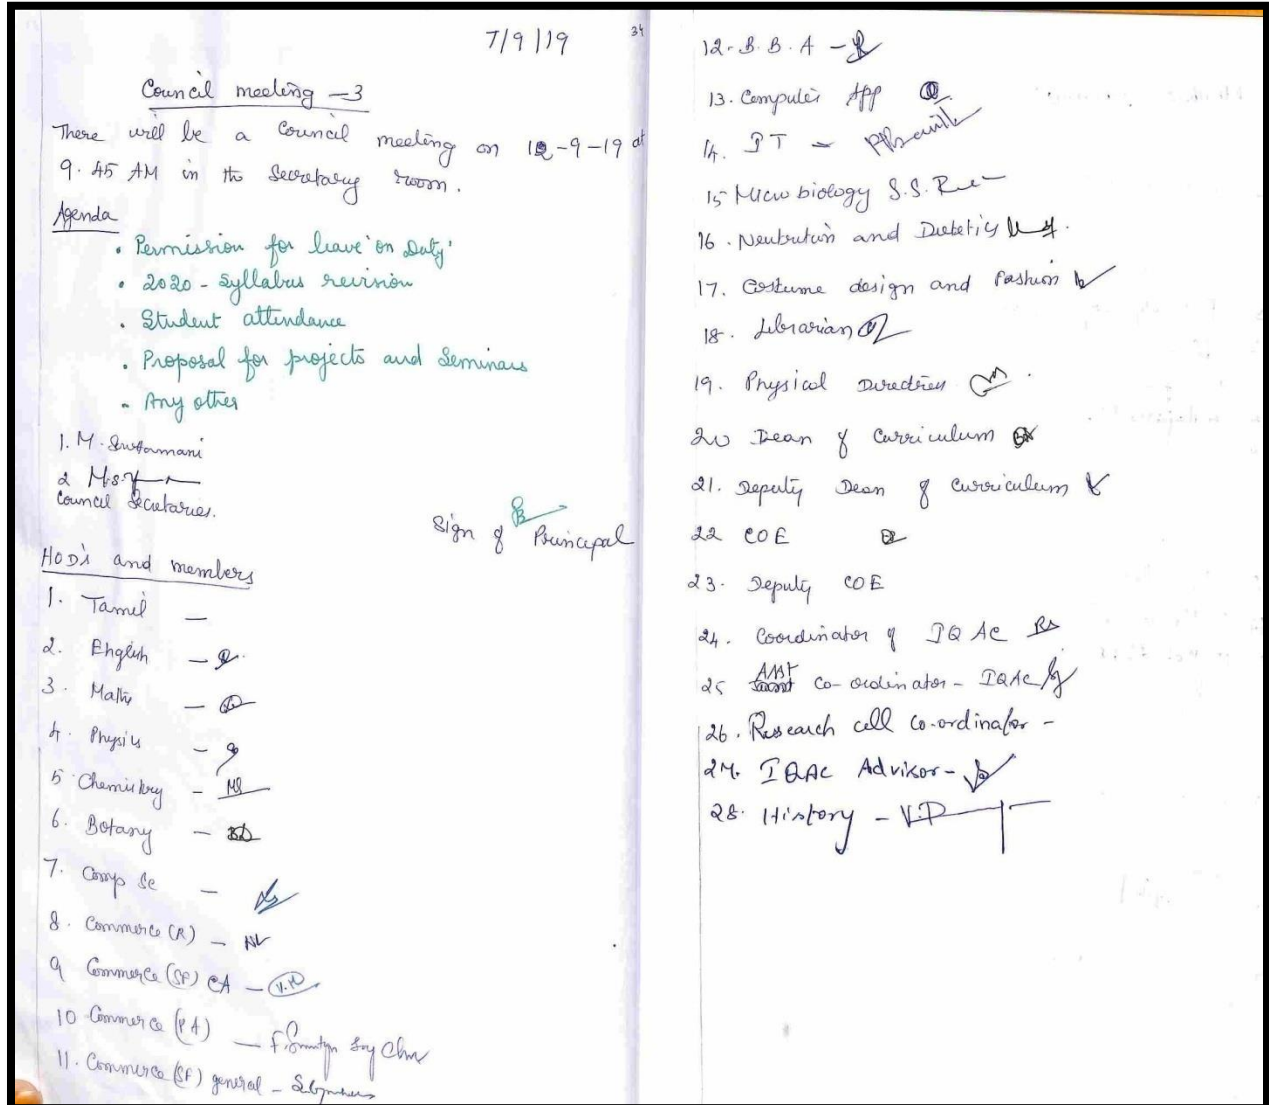 7/9/19
34
Council meeting -3
There will be a Council meeting on 12-9-19 at
9.45 AM in the Secretary room.
Agenda
• Permission for leave 'on Duty'
• 2020 - Syllabus revision
• Student attendance
• Proposal for projects and Seminars
• Any other
1. M.
2 M.S.
Council Secretaries.
Sign of Principal
HOD's and members
1. Tamil —
2. English —
3. Maths —
4. Physics —
5 Chemistry - MS
6. Botany —
7. Comp Sc —
8. Commerce (R) —
9 Commerce (SF) CA — V.M
10 Commerce (PA) —
11. Commerce (SF) general -
12. B.B.A -
13. Computer App
14. IT -
15 Microbiology S.S.
16. Neutrition and Dietetics
17. Costume design and Fashion
18. Librarian
19. Physical Directress
20 Dean of Curriculum
21. Deputy Dean of Curriculum
22 COE
23. Deputy COE
24. Coordinator of IQAC
25 Asst Co-ordinator - IQAC
26. Research cell co-ordinator -
27. IQAC Advisor -
28. History - V.P